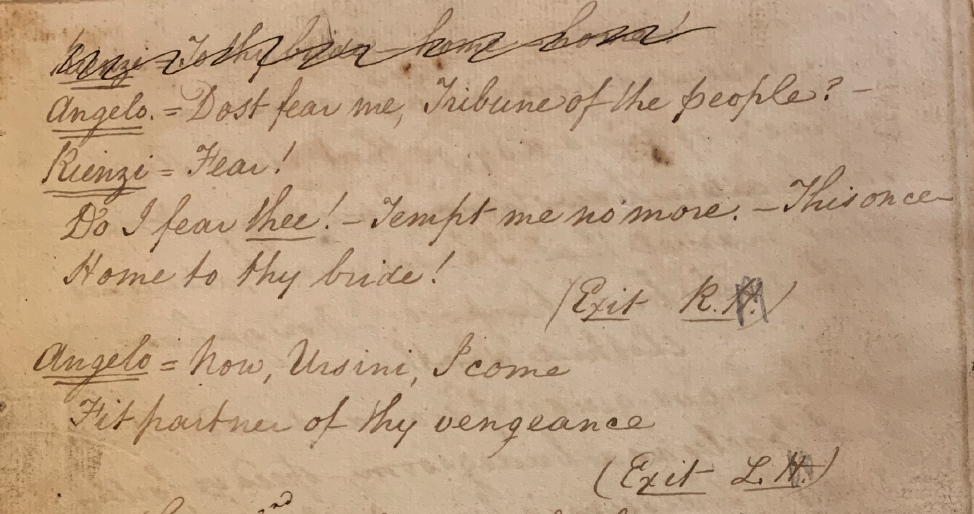 Rienzi = To thy bride home home!
Angelo. = Dost fear me, Tribune of the people? -
Rienzi = Fear!
Do I fear thee! - Tempt me no more. - This once
Home to thy bride!
(Exit R.H.)
Angelo = Now, Ursini, I come
Fit partner of thy vengeance
(Exit L.H.)